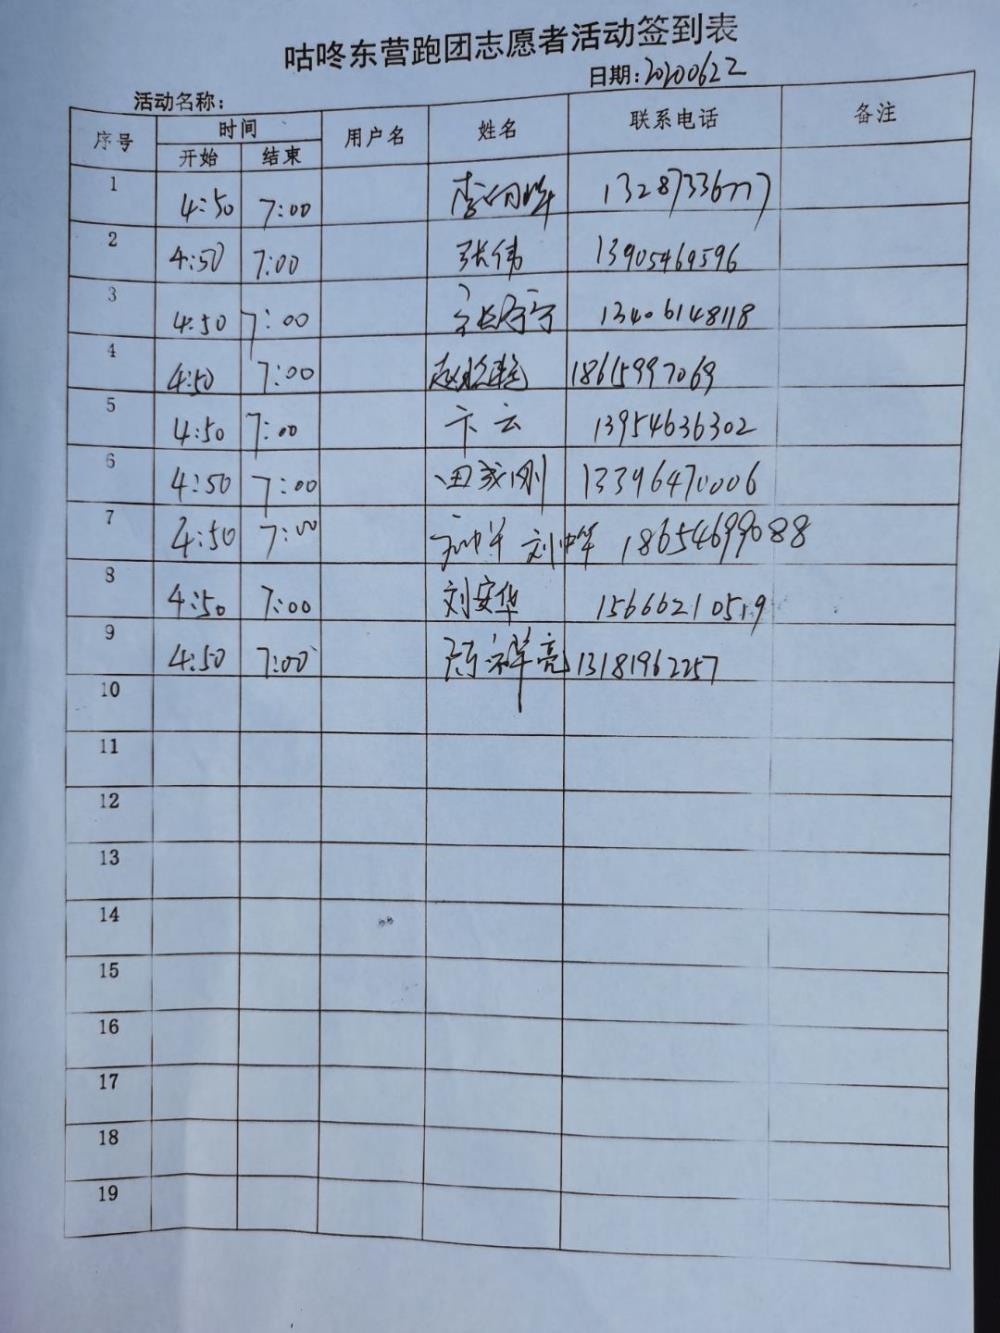 咕咚东营跑团志愿者活动签到表
日期:20200622
活动名称:
序号 时间 用户名 姓名 联系电话 备注
开始 结束
1 4:50 7:00 13287336777
2 4:50 7:00 张伟 13905469596
3 4:50 7:00 13406148118
4 4:50 7:00 18615997069
5 4:50 7:00 卞云 13954636302
6 4:50 7:00 田成刚 13396470006
7 4:50 7:00 刘中华 18654699088
8 4:50 7:00 刘安华 15666210519
9 4:50 7:00 陈祥亮 13181962257
10
11
12
13
14
15
16
17
18
19